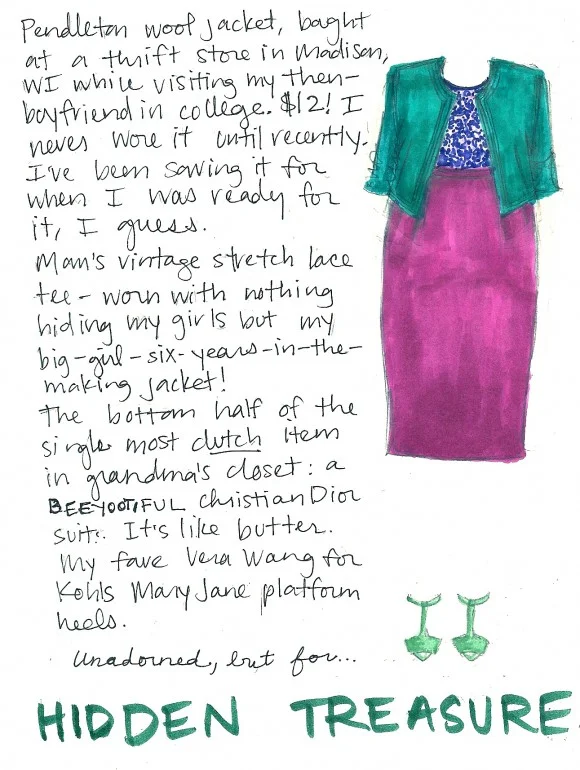 Pendleton wool jacket, bought
at a thrift store in Madison,
WI while visiting my then-
boyfriend in college. $12! I
never wore it until recently.
I've been saving it for
when I was ready for
it, I guess.
Mom's vintage stretch lace
tee - worn with nothing
hiding my girls but my
big-girl-six-years-in-the-
making jacket!
The bottom half of the
single most clutch item
in grandma's closet: a
BEEYOOTIFUL Christian Dior
suit. It's like butter.
My fave Vera Wang for
Kohls Mary Jane platform
heels.
Unadorned, but for...
HIDDEN TREASURE